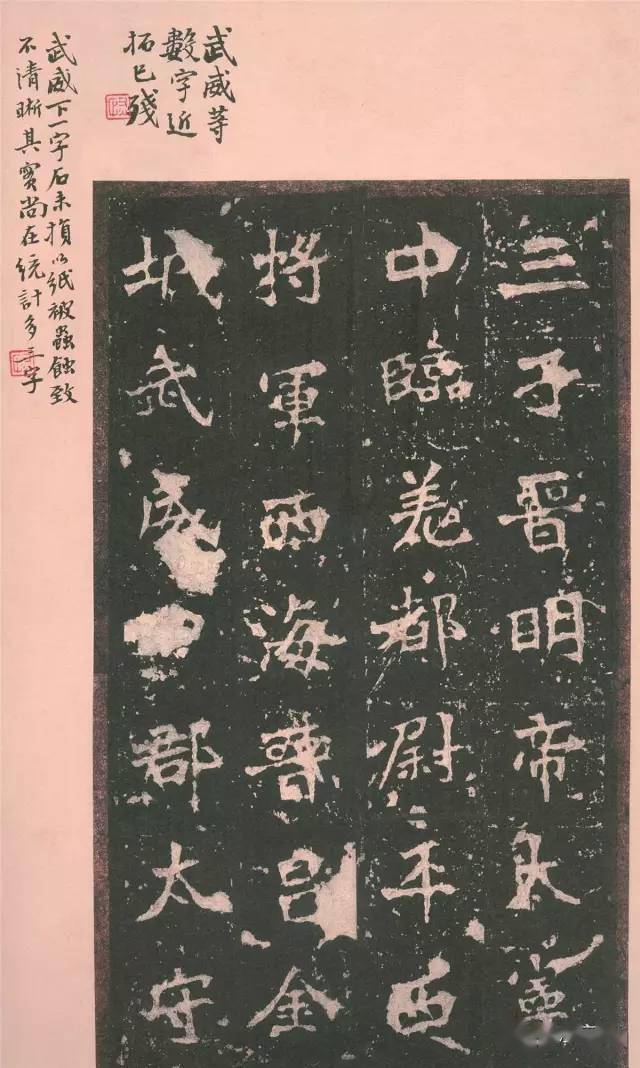 武威等
數字近
拓已殘
武威下一字石未損以紙被蟲蝕致
不清晰其實尚在統計多三字
三子晉明帝太寧
中臨羌都尉平西
將軍西海晉昌金
城武威郡太守